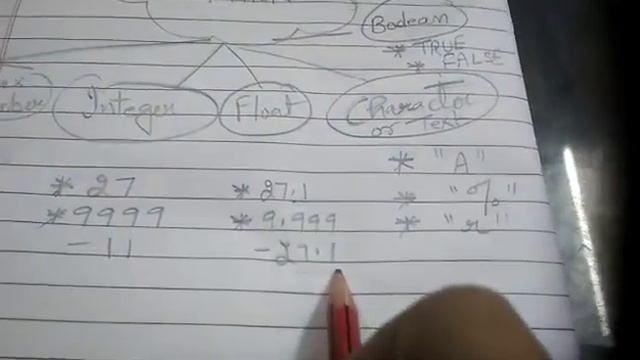 Bodean
* TRUE
* FALSE
Integer
Float
Character
or Text
* 27
* 9999
- 11
* 27.1
* 9.999
- 27.1
* "A"
* "%"
* "r"